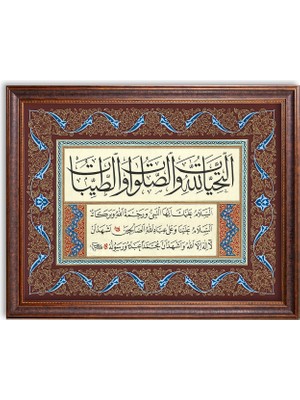 التحيات لله والصلوات والطيبات
السلام عليك ايها النبي ورحمة الله وبركاته
السلام علينا وعلى عباد الله الصالحين اشهد ان
لا اله الا الله واشهد ان محمدا عبده ورسوله